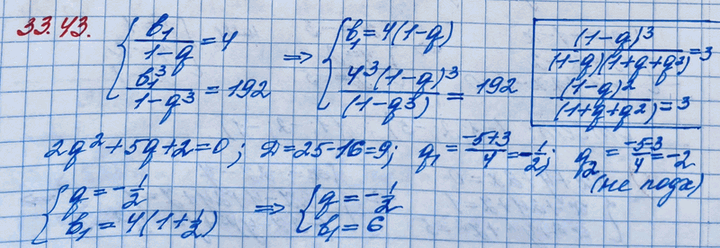 33.43.
{ b₁/(1-q) = 4 ⇒ { b₁ = 4(1-q)
{ b₁³/(1-q³) = 192 { 4³(1-q)³/(1-q³) = 192
(1-q)³/((1-q)(1+q+q²)) = 3
(1-q)²/(1+q+q²) = 3
2q²+5q+2=0; D=25-16=9; q₁ = (-5+3)/4 = -1/2; q₂ = (-5-3)/4 = -2
(не подх)
{ q = -1/2 ⇒ { q = -1/2
{ b₁ = 4(1+1/2) { b₁ = 6